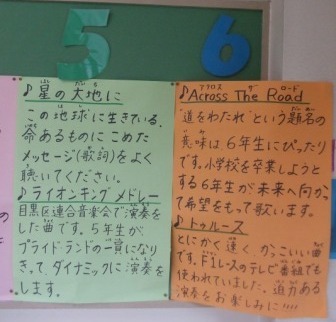 5
6
♪星の大地に
この地球に生きている、
命あるものにこめた
メッセージ(歌詞)をよく
聴いてください。
♪ライオンキングメドレー
目黒区連合音楽会で演奏を
した曲です。5年生が
プライドランドの一員になり
きって、ダイナミックに演奏を
します。
♪Across The Road
"道をわたれ"という題名の
意味は6年生にぴったり
です。小学校を卒業しようと
する6年生が未来へ向か
って希望をもって歌います。
♪トゥルース
とにかく速く かっこいい曲
です。F1レースのテレビ番組でも
使われていました。迫力ある
演奏をお楽しみに!!!!